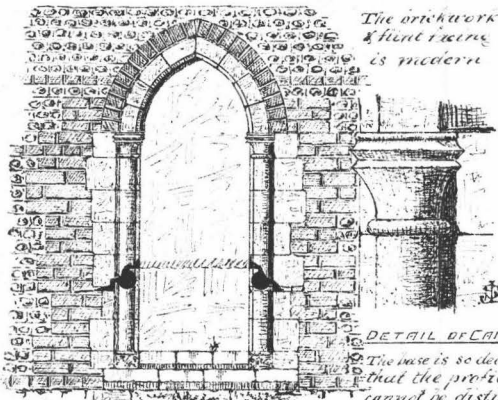 The brickwork
& flint facing
is modern
DETAIL OF CAP
The base is so dec
that the profi
cannot be disti